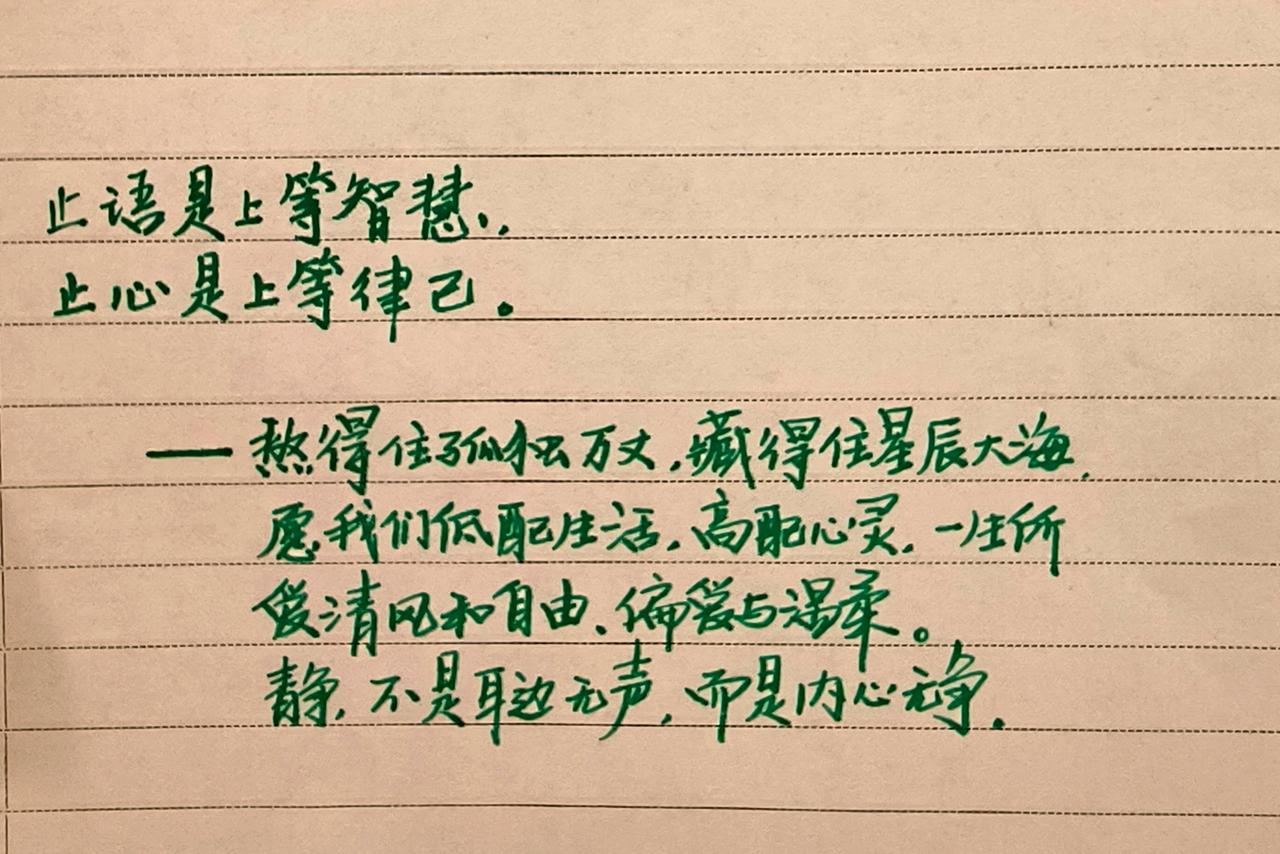 止语是上等智慧,
止心是上等律己。
——熬得住孤独万丈,藏得住星辰大海,
愿我们低配生活,高配心灵,一生所
爱清风和自由、偏爱与温柔。
静,不是耳边无声,而是内心无争.